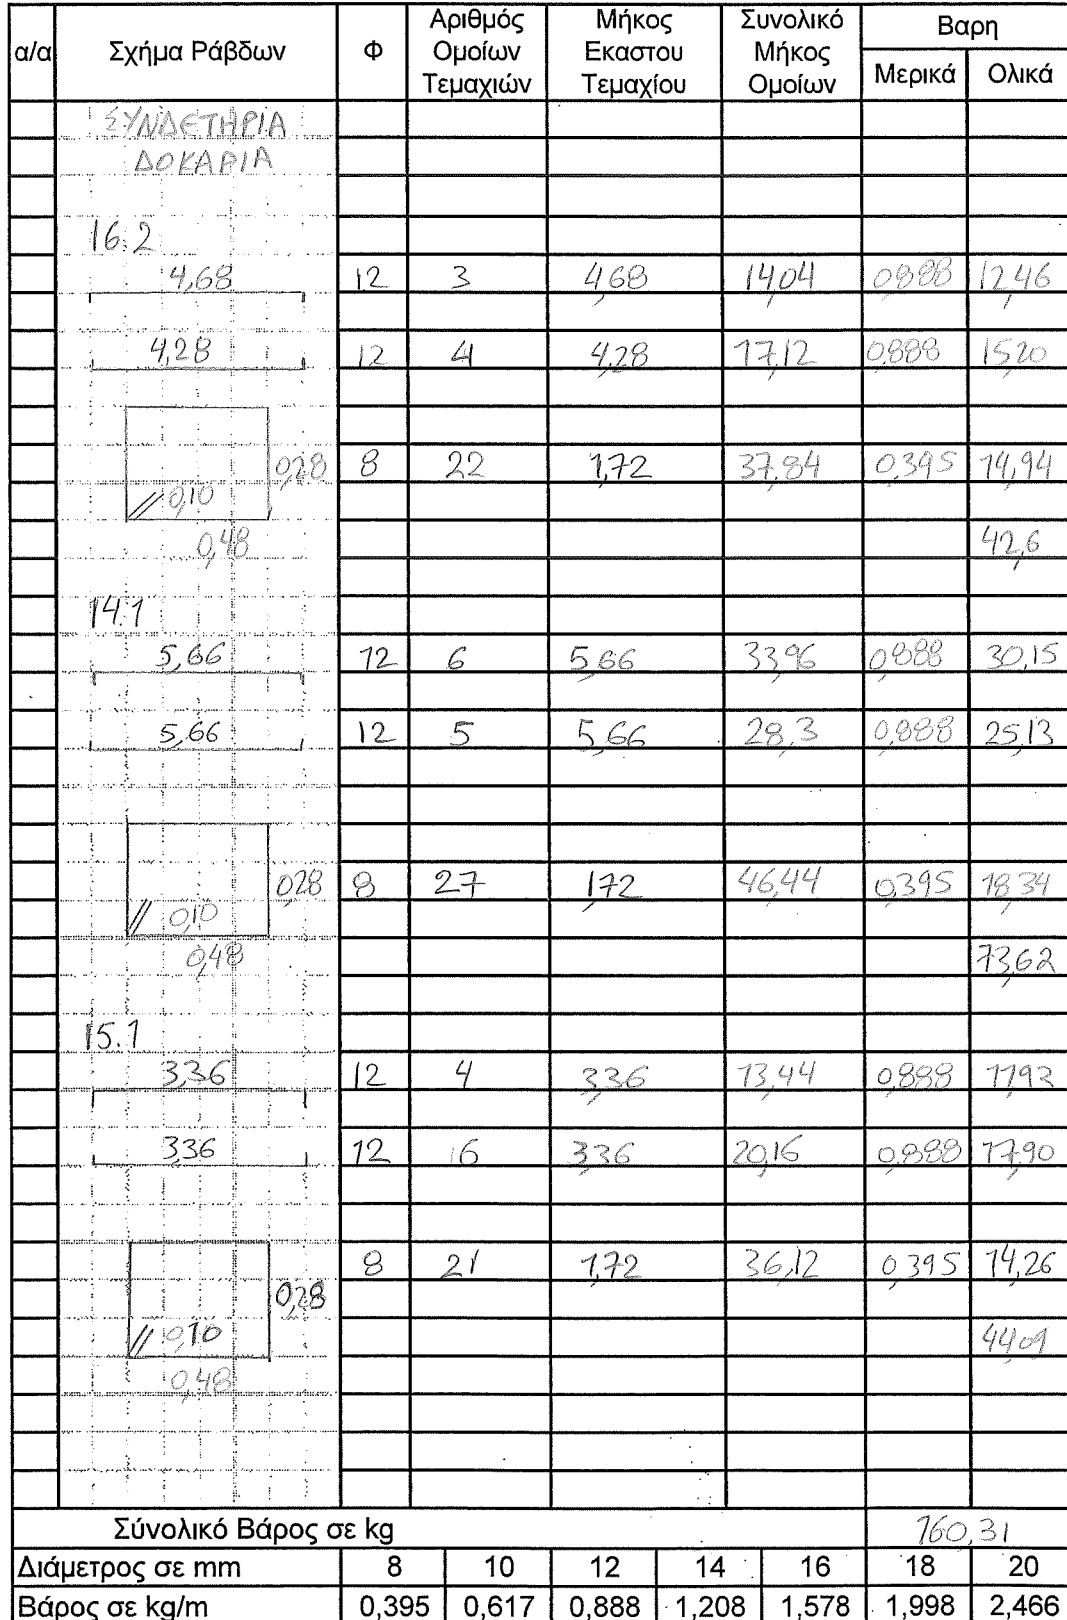 α/α Σχήμα Ράβδων Φ Αριθμός Ομοίων Τεμαχιών Μήκος Εκαστου Τεμαχίου Συνολικό Μήκος Ομοίων Βαρη Μερικά Ολικά
ΣΥΝΔΕΤΗΡΙΑ
ΔΟΚΑΡΙΑ
16.2
4,68 12 3 4,68 14,04 0,888 12,46
4,28 12 4 4,28 17,12 0,888 15,20
0,28 8 22 1,72 37,84 0,395 14,94
0,10
0,48 42,6
14.1
5,66 12 6 5,66 33,96 0,888 30,15
5,66 12 5 5,66 28,3 0,888 25,13
0,28 8 27 1,72 46,44 0,395 18,34
0,10
0,48 73,62
15.1
3,36 12 4 3,36 13,44 0,888 11,93
3,36 12 6 3,36 20,16 0,888 17,90
8 21 1,72 36,12 0,395 14,26
0,28
0,10 44,09
0,48
Σύνολικό Βάρος σε kg 160,31
Διάμετρος σε mm 8 10 12 14 16 18 20
Βάρος σε kg/m 0,395 0,617 0,888 1,208 1,578 1,998 2,466